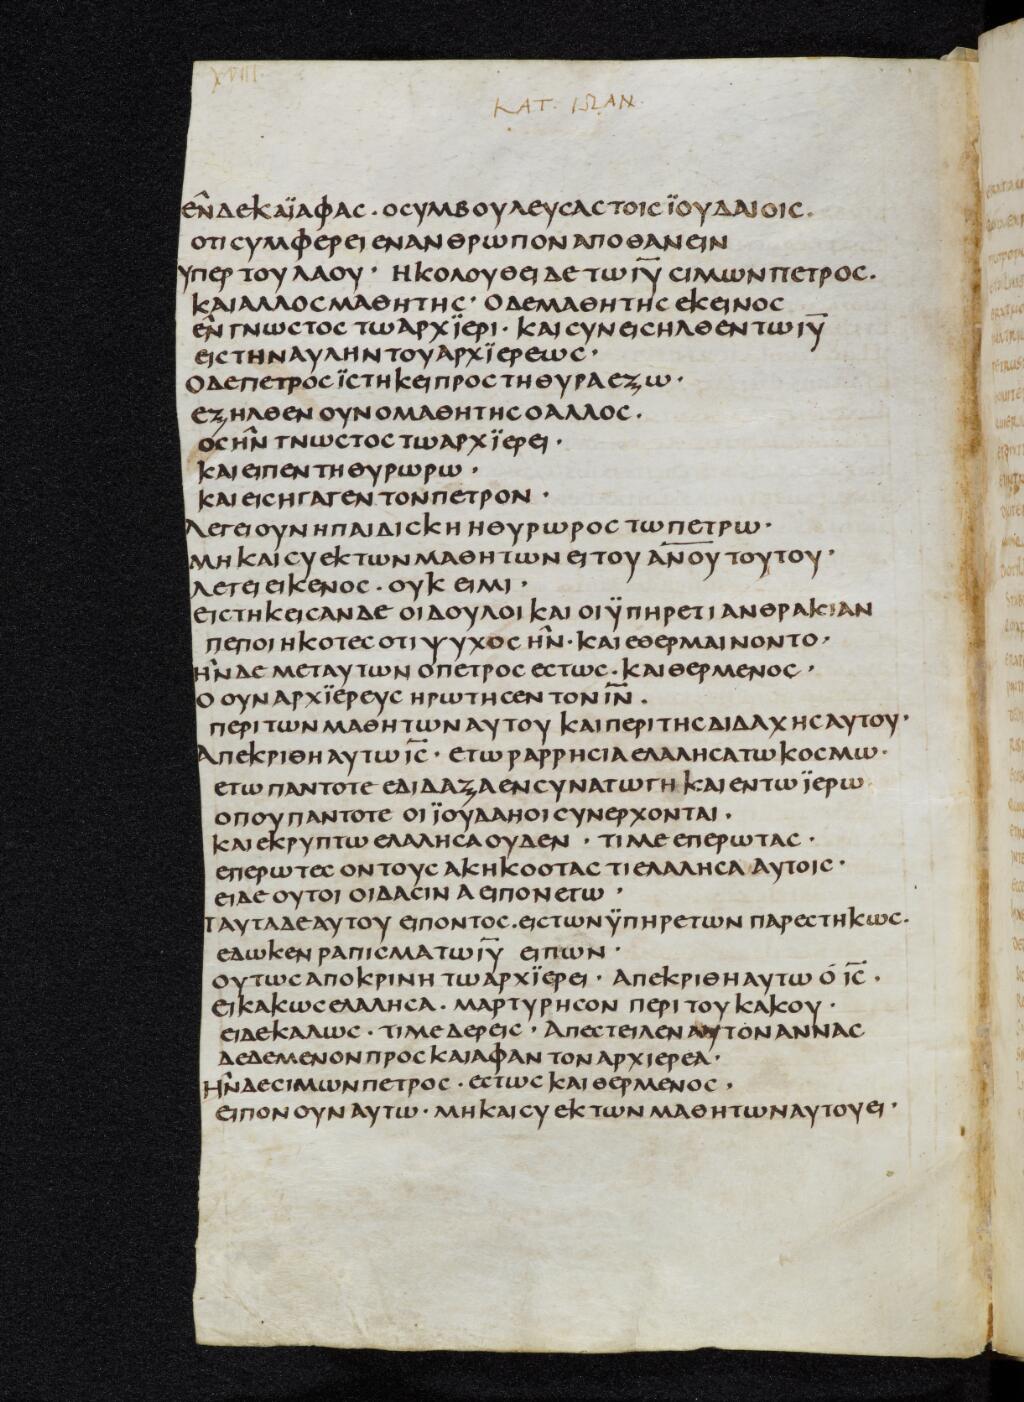 XVIII.
ΚΑΤ. ΙΩΑΝ.
ΕΝ̂ΔΕΚΑΪΑΦΑC · ΟCΥΜΒΟΥΛΕΥCΑCΤΟΙC ΪΟΥΔΑΙΟΙC.
ΟΤΙCΥΜΦΕΡΕΙΕΝΑΝΘΡΩΠΟΝΑΠΟΘΑΝΕΙΝ
ΥΠΕΡΤΟΥΛΑΟΥ · ΗΚΟΛΟΥΘΕΙΔΕΤΩΙ̅Υ̅ CΙΜΩΝΠΕΤΡΟC.
ΚΑΙΑΛΛΟCΜΑΘΗΤΗC · ΟΔΕΜΑΘΗΤΗC ΕΚΕΙΝΟC
ΕΝ̂ ΓΝΩCΤΟC ΤΩΑΡΧΪΕΡΙ · ΚΑΙCΥΝΕΙCΗΛΘΕΝΤΩΙ̅Υ̅
ΕΙCΤΗΝΑΥΛΗΝΤΟΥΑΡΧΪΕΡΕΩC ·
ΟΔΕΠΕΤΡΟC ΪCΤΗΚΕΙΠΡΟCΤΗΘΥΡΑΕΞΩ ·
ΕΞΗΛΘΕΝ ΟΥΝΟΜΑΘΗΤΗCΟΑΛΛΟC.
ΟCΗΝ̂ ΓΝΩCΤΟCΤΩΑΡΧΪΕΡΕΙ ·
ΚΑΙΕΙΠΕΝΤΗΘΥΡΩΡΩ ·
ΚΑΙΕΙCΗΓΑΓΕΝΤΟΝΠΕΤΡΟΝ ·
ΛΕΓΕΙΟΥΝΗΠΑΙΔΙCΚΗΗΘΥΡΩΡΟC ΤΩΠΕΤΡΩ ·
ΜΗΚΑΙCΥΕΚΤΩΝΜΑΘΗΤΩΝΕΙΤΟΥ Α̅Ν̅Ο̅Υ̅ΤΟΥΤΟΥ ·
ΛΕΓΕΙΕΙΚΕΝΟC · ΟΥΚ ΕΙΜΙ ·
ΕΙCΤΗΚΕΙCΑΝΔΕ ΟΙΔΟΥΛΟΙΚΑΙΟΙΫΠΗΡΕΤΙ ΑΝΘΡΑΚΙΑΝ
ΠΕΠΟΙΗΚΟΤΕCΟΤΙΨΥΧΟC ΗΝ̂ · ΚΑΙΕΘΕΡΜΑΙΝΟΝΤΟ ·
ΗΝ̂ΔΕ ΜΕΤΑΥΤΩΝ ΟΠΕΤΡΟCΕCΤΩC · ΚΑΙΘΕΡΜΕΝΟC ·
Ο ΟΥΝΑΡΧΪΕΡΕΥC ΗΡΩΤΗCΕΝΤΟΝΙ̅Ν̅ .
ΠΕΡΙΤΩΝΜΑΘΗΤΩΝΑΥΤΟΥ ΚΑΙΠΕΡΙΤΗCΔΙΔΑΧΗCΑΥΤΟΥ ·
ΑΠΕΚΡΙΘΗΑΥΤΩΙ̅C̅ · ΕΓΩΡΑΡΡΗCΙΑΕΛΑΛΗCΑΤΩΚΟCΜΩ ·
ΕΓΩΠΑΝΤΟΤΕ ΕΔΙΔΑΞΑΕΝCΥΝΑΓΩΓΗΚΑΙΕΝΤΩΪΕΡΩ
ΟΠΟΥΠΑΝΤΟΤΕ ΟΙΪΟΥΔΑΗΟΙCΥΝΕΡΧΟΝΤΑΙ .
ΚΑΙΕΚΡΥΠΤΩΕΛΑΛΗCΑΟΥΔΕΝ · ΤΙΜΕΕΠΕΡΩΤΑC ·
ΕΠΕΡΩΤΕCΟΝΤΟΥCΑΚΗΚΟΟΤΑCΤΙΕΛΑΛΗCΑΑΥΤΟΙC ·
ΕΙΔΕΟΥΤΟΙΟΙΔΑCΙΝ Α ΕΙΠΟΝΕΓΩ ·
ΤΑΥΤΑΔΕΑΥΤΟΥ ΕΙΠΟΝΤΟC.ΕΙCΤΩΝΫΠΗΡΕΤΩΝ ΠΑΡΕCΤΗΚΩC ·
ΕΔΩΚΕΝΡΑΠΙCΜΑΤΩΙ̅Υ̅ ΕΙΠΩΝ ·
ΟΥΤΩCΑΠΟΚΡΙΝΗ ΤΩΑΡΧΪΕΡΕΙ · ΑΠΕΚΡΙΘΗΑΥΤΩ Ο Ι̅C̅ ·
ΕΙΚΑΚΩCΕΛΑΛΗCΑ · ΜΑΡΤΥΡΗCΟΝ ΠΕΡΙΤΟΥΚΑΚΟΥ ·
ΕΙΔΕΚΑΛΩC · ΤΙΜΕΔΕΡΕΙC · ΑΠΕCΤΕΙΛΕΝΑΥΤΟΝΑΝΝΑC
ΔΕΔΕΜΕΝΟΝΠΡΟCΚΑΙΑΦΑΝΤΟΝΑΡΧΙΕΡΕΑ ·
ΗΝ̂ΔΕCΙΜΩΝΠΕΤΡΟC · ΕCΤΩCΚΑΙΘΕΡΜΕΝΟC ·
ΕΙΠΟΝΟΥΝΑΥΤΩ · ΜΗΚΑΙCΥΕΚΤΩΝΜΑΘΗΤΩΝΑΥΤΟΥΕΙ ·